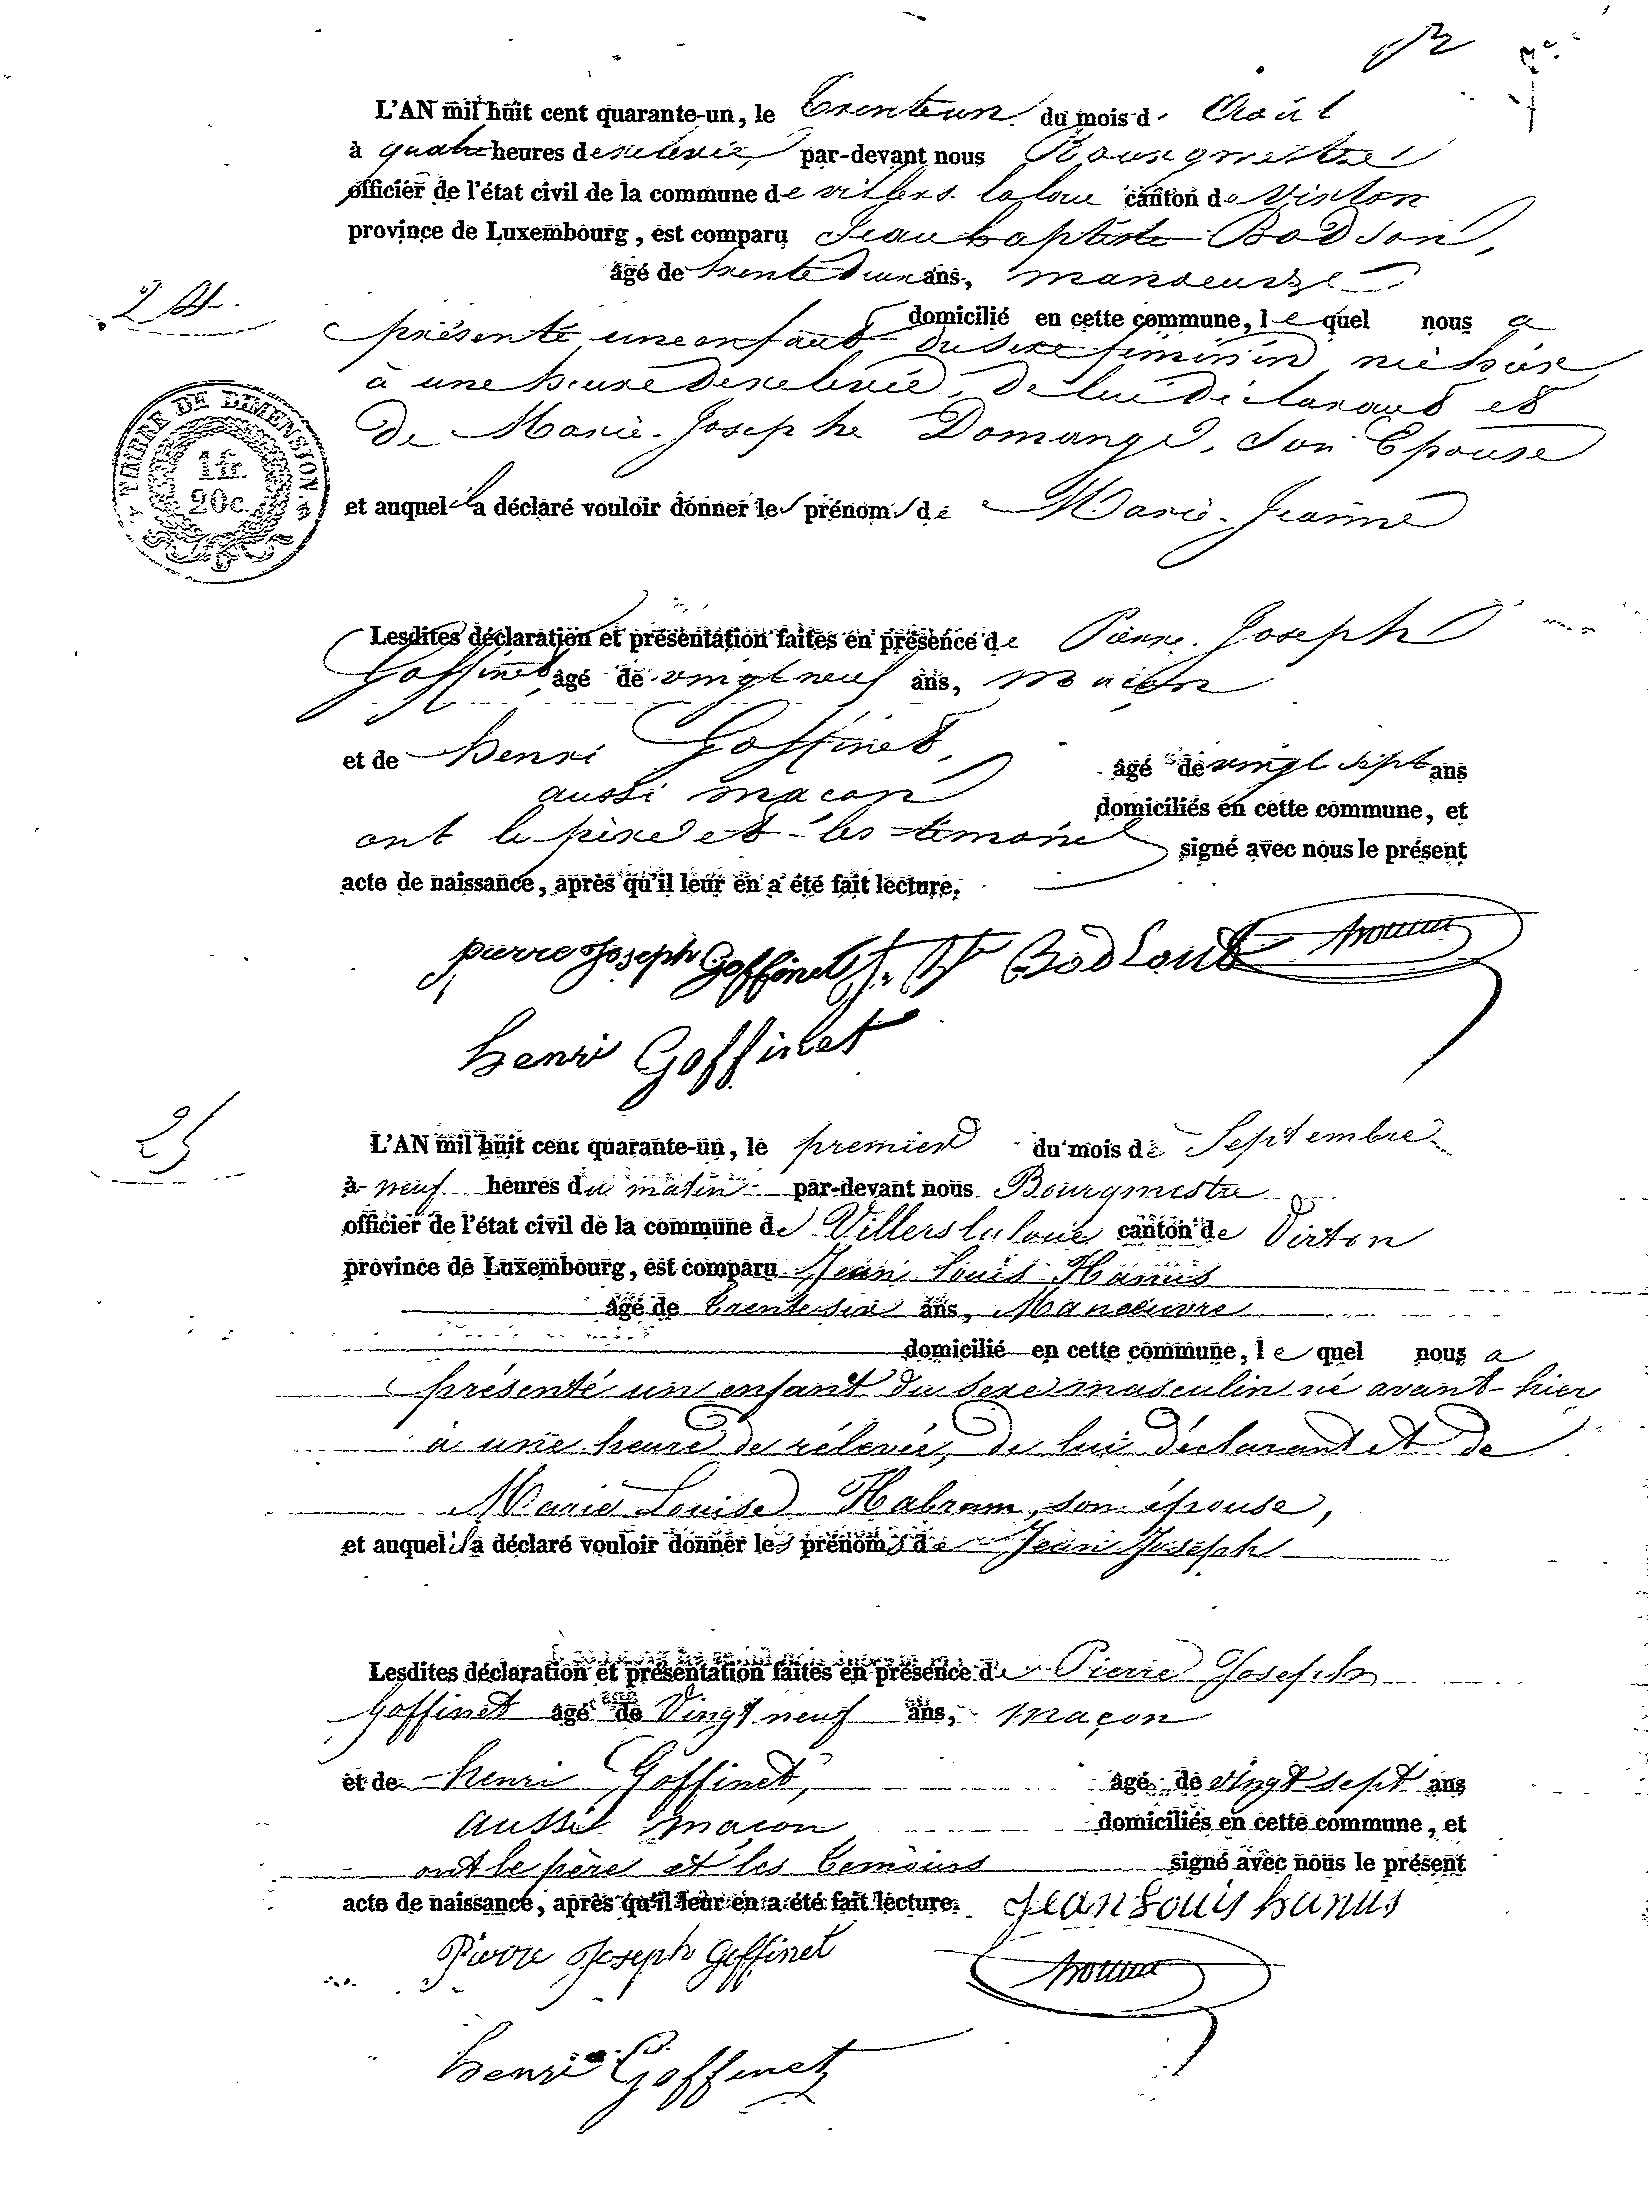 L'AN mil huit cent quarante-un, le trenteun du mois d'Août
à quatre heures de relevée, par-devant nous Bourgmestre
officier de l'état civil de la commune de villers la loue canton de Virton
province de Luxembourg, est comparu Jean baptiste Bodson,
âgé de trente deux ans, manoeuvre
24.
domicilié en cette commune, lequel nous a
présenté une enfant du sexe féminin née hier
à une heure de relevée, de lui déclarant et
de Marie-Josephe Domange, son Epouse
TIMBRE DE DIMENSION.
1 fr.
20c.
et auquel il a déclaré vouloir donner les prénoms de Marie-Jeanne
Lesdites déclaration et présentation faites en présence de Pierre Joseph
Goffinet âgé de vingt neuf ans, maçon
et de henri Goffinet, âgé de vingt sept ans
aussi maçon domiciliés en cette commune, et
ont le père et les témoins signé avec nous le présent
acte de naissance, après qu'il leur en a été fait lecture.
pierre Joseph Goffinet J. Bte Bodson
henri Goffinet
25
L'AN mil huit cent quarante-un, le premier du mois de Septembre
à neuf heures du matin par-devant nous Bourgmestre
officier de l'état civil de la commune de Villers la loue canton de Virton
province de Luxembourg, est comparu Jean Louis Hanus
âgé de trente six ans, Manoeuvre
domicilié en cette commune, lequel nous a
présenté un enfant du sexe masculin né avant-hier
à une heure de rélevée, de lui déclarant et de
Marie Louise Habram, son épouse,
et auquel il a déclaré vouloir donner les prénoms de Jean Joseph
Lesdites déclaration et présentation faites en présence de Pierre Joseph
Goffinet âgé de Vingt neuf ans, maçon
et de henri Goffinet, âgé de vingt sept ans
aussi maçon domiciliés en cette commune, et
ont le père et les temoins signé avec nous le présent
acte de naissance, après qu'il leur en a été fait lecture. Jean Louis hanus
Pierre Joseph Goffinet
henri Goffinet